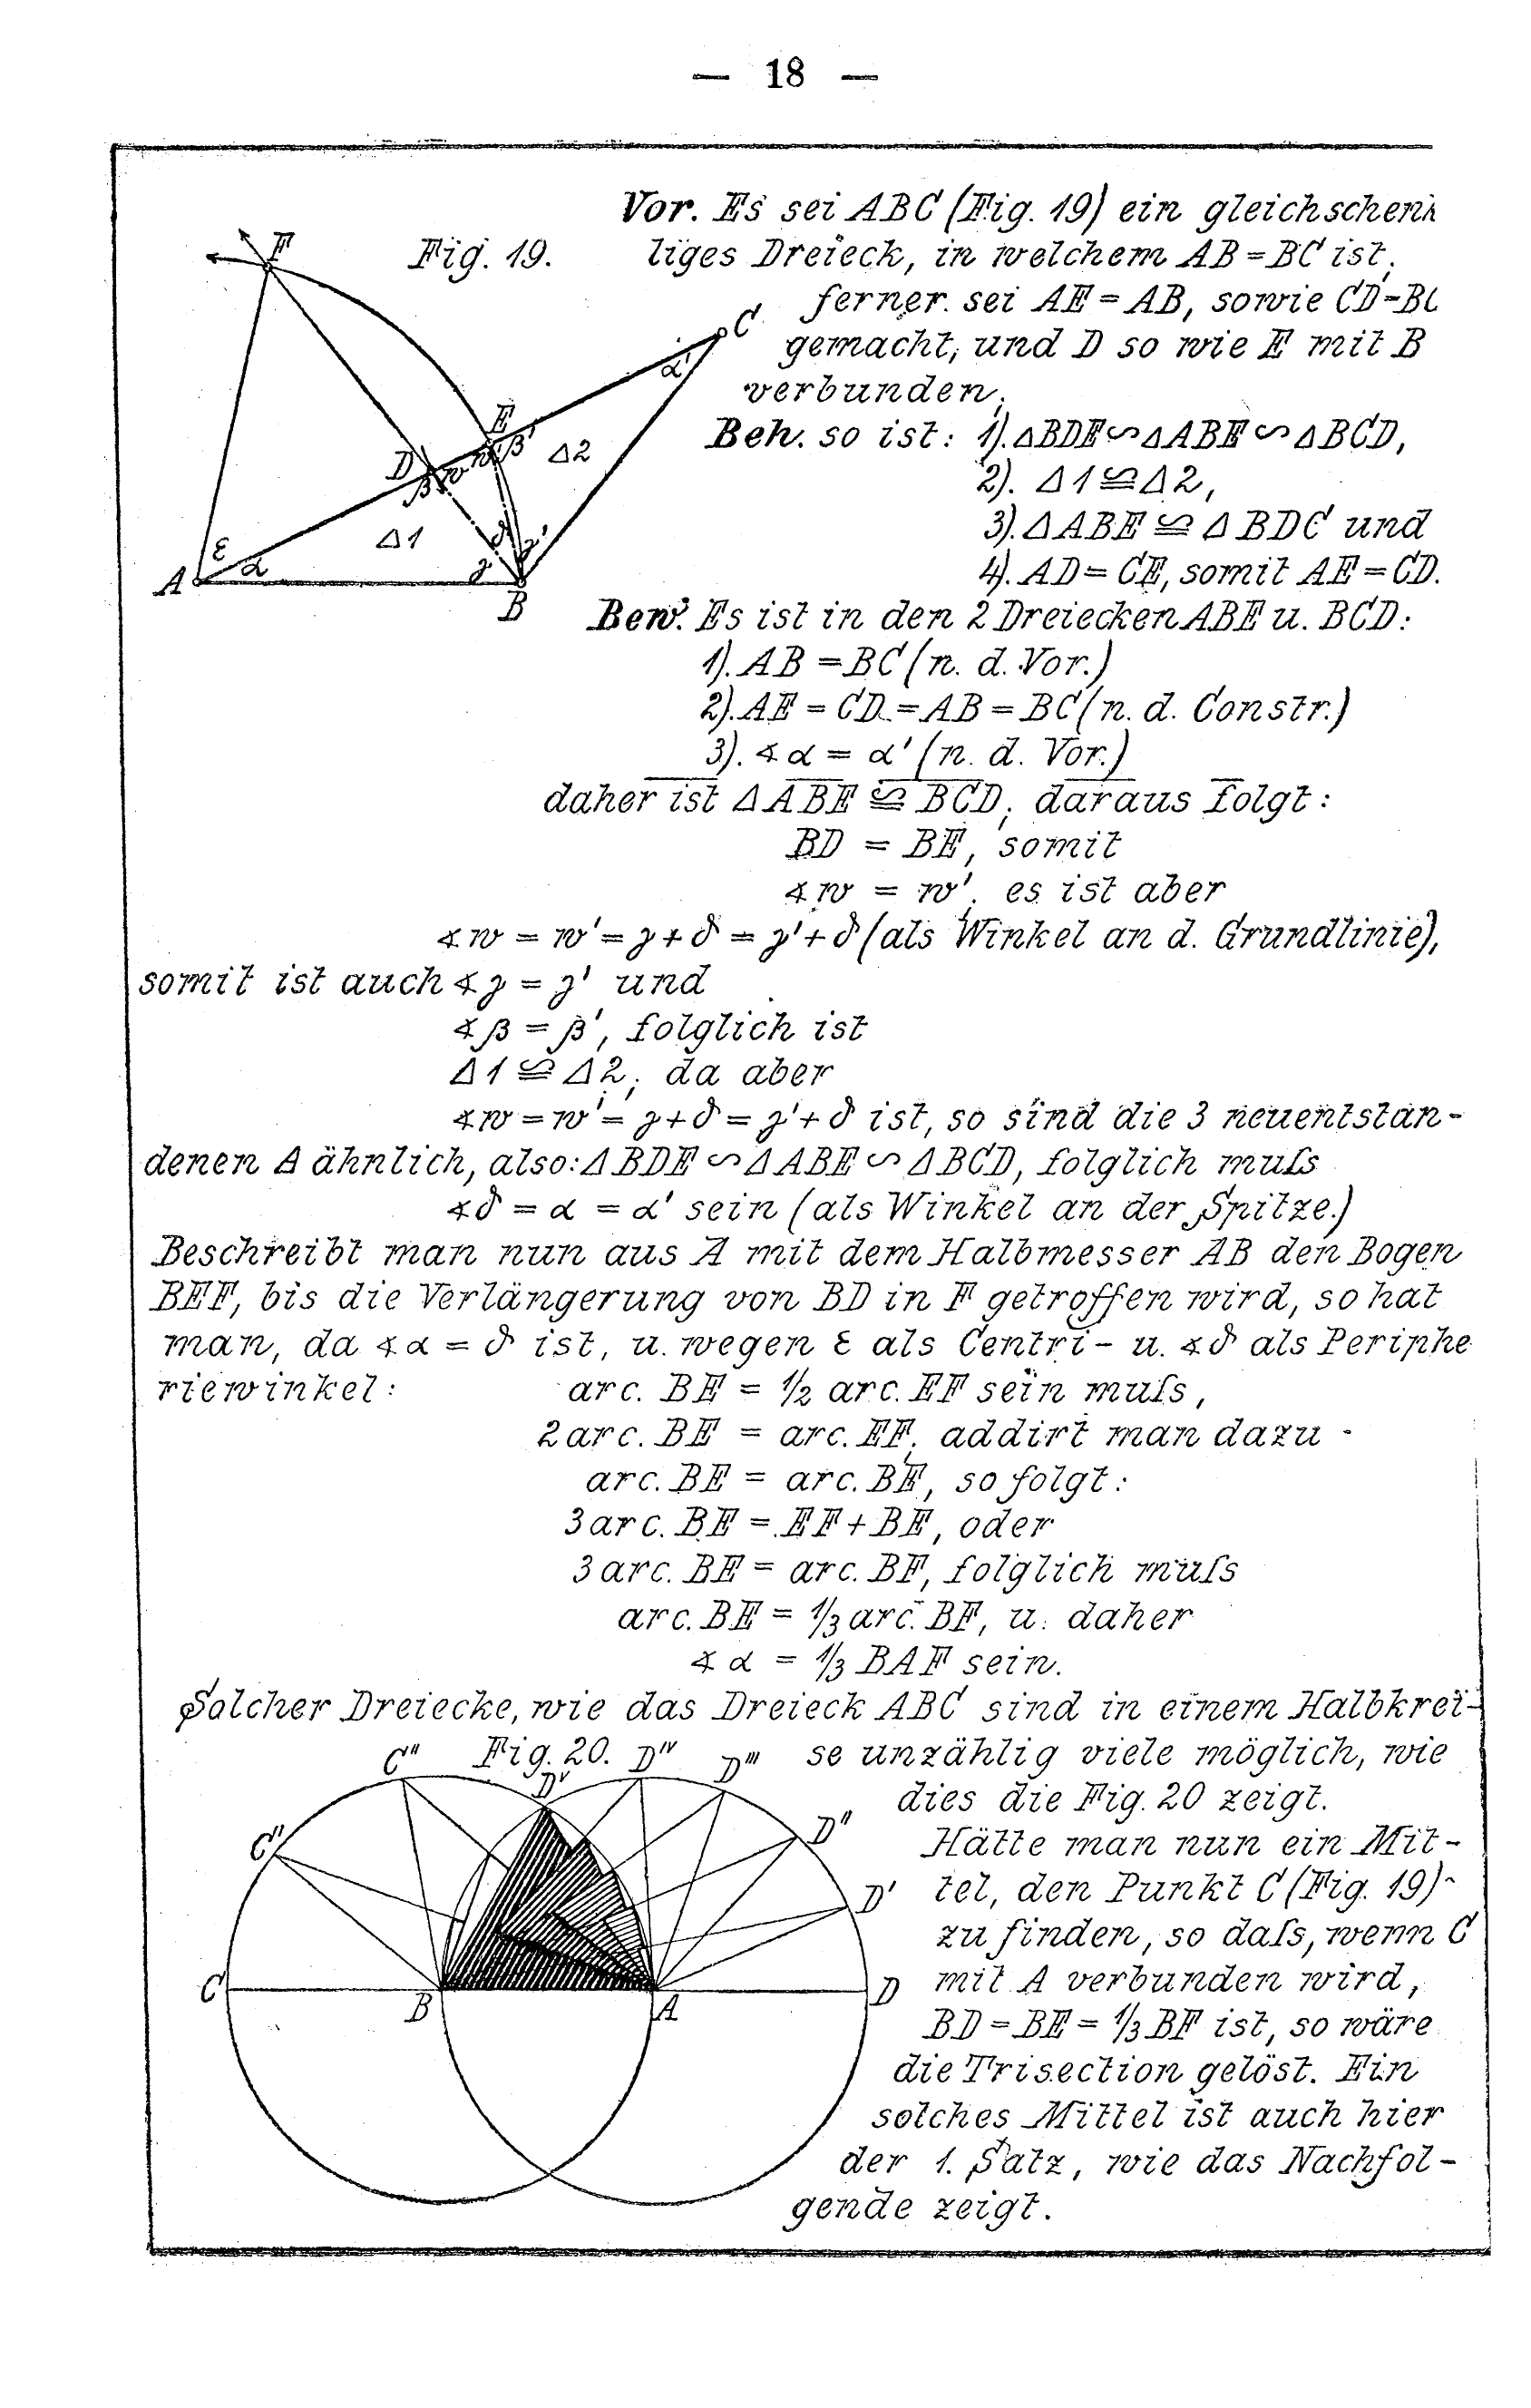 — 18 —
Vor. Es sei ABC (Fig. 19) ein gleichschenk
Fig. 19. liges Dreieck, in welchem AB = BC ist;
ferner sei AE = AB, sowie CD = BC
gemacht, und D so wie E mit B
verbunden;
Beh. so ist: 1). △BDE ∽ △ABE ∽ △BCD,
2). △1 ≌ △2,
3). △ABE ≌ △BDC und
4). AD = CE, somit AE = CD.
F
C
α'
E
β'
△2
D
w
w'
β
△1
δ
γ'
ε
α
γ
A
B
Bew. Es ist in den 2 Dreiecken ABE u. BCD:
1). AB = BC (n. d. Vor.)
2). AE = CD = AB = BC (n. d. Constr.)
3). ∢ α = α' (n. d. Vor.)
daher ist △ ABE ≌ BCD; daraus folgt:
BD = BE, somit
∢ w = w'; es ist aber
∢ w = w' = γ + δ = γ' + δ (als Winkel an d. Grundlinie),
somit ist auch ∢ γ = γ' und
∢ β = β', folglich ist
△ 1 ≌ △ 2; da aber
∢ w = w' = γ + δ = γ' + δ ist, so sind die 3 neuentstan-
denen △ ähnlich, also: △ BDE ∽ △ ABE ∽ △ BCD, folglich muſs
∢ δ = α = α' sein (als Winkel an der Spitze.)
Beschreibt man nun aus A mit dem Halbmesser AB den Bogen
BEF, bis die Verlängerung von BD in F getroffen wird, so hat
man, da ∢ α = δ ist, u. wegen ε als Centri- u. ∢ δ als Periphe
riewinkel: arc. BE = 1/2 arc. EF sein muſs,
2 arc. BE = arc. EF; addirt man dazu
arc. BE = arc. BE, so folgt:
3 arc. BE = EF + BE, oder
3 arc. BE = arc. BF, folglich muſs
arc. BE = 1/3 arc. BF, u. daher
∢ α = 1/3 BAF sein.
Solcher Dreiecke, wie das Dreieck ABC sind in einem Halbkrei-
Fig. 20. se unzählig viele möglich, wie
dies die Fig. 20 zeigt.
Hätte man nun ein Mit-
tel, den Punkt C (Fig. 19)
zu finden, so daſs, wenn C
mit A verbunden wird,
BD = BE = 1/3 BF ist, so wäre
die Trisection gelöst. Ein
solches Mittel ist auch hier
der 1. Satz, wie das Nachfol-
gende zeigt.
C'''
D^V
D^IV
D'''
C''
D''
D'
C
B
A
D